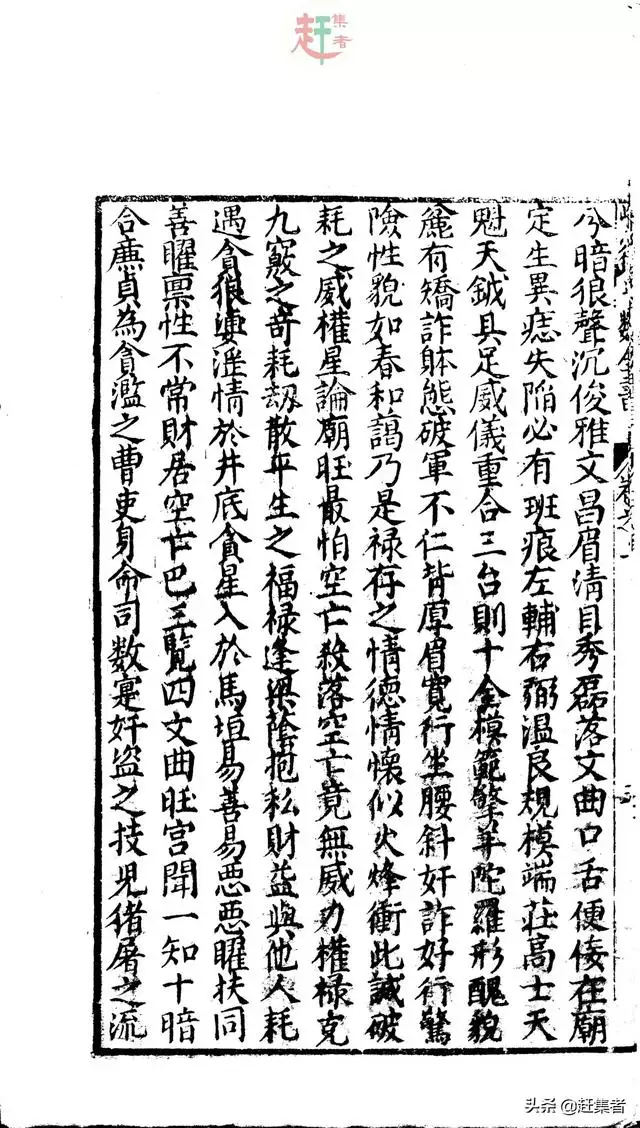 赶集者
兮暗很聲沉俊雅文昌眉清目秀磊落文曲口舌便倭在廟
定生異痣失陷必有班痕左輔右弼溫良規模端莊高士天
魁天鉞具足威儀重合三台則十全模範擎羊陀羅形醜貌
麄有矯詐躰態破軍不仁背厚眉寬行坐腰斜奸詐好行驚
險性貌如春和藹乃是禄存之情德情懷似火烽衝此誠破
耗之威權星論廟旺最怕空亡殺落空亡竟無威力權禄克
九竅之奇耗劫散平生之福禄逢梁蔭抱私財益與他人耗
遇貪狼婬滛情於井底貪星入於馬垣易善易惡惡曜扶同
善曜禀性不常財居空亡巴三覽四文曲旺宫聞一知十暗
合廉貞為貪濫之曹吏身命司数寔奸盗之技児猪屠之流
头条 @赶集者